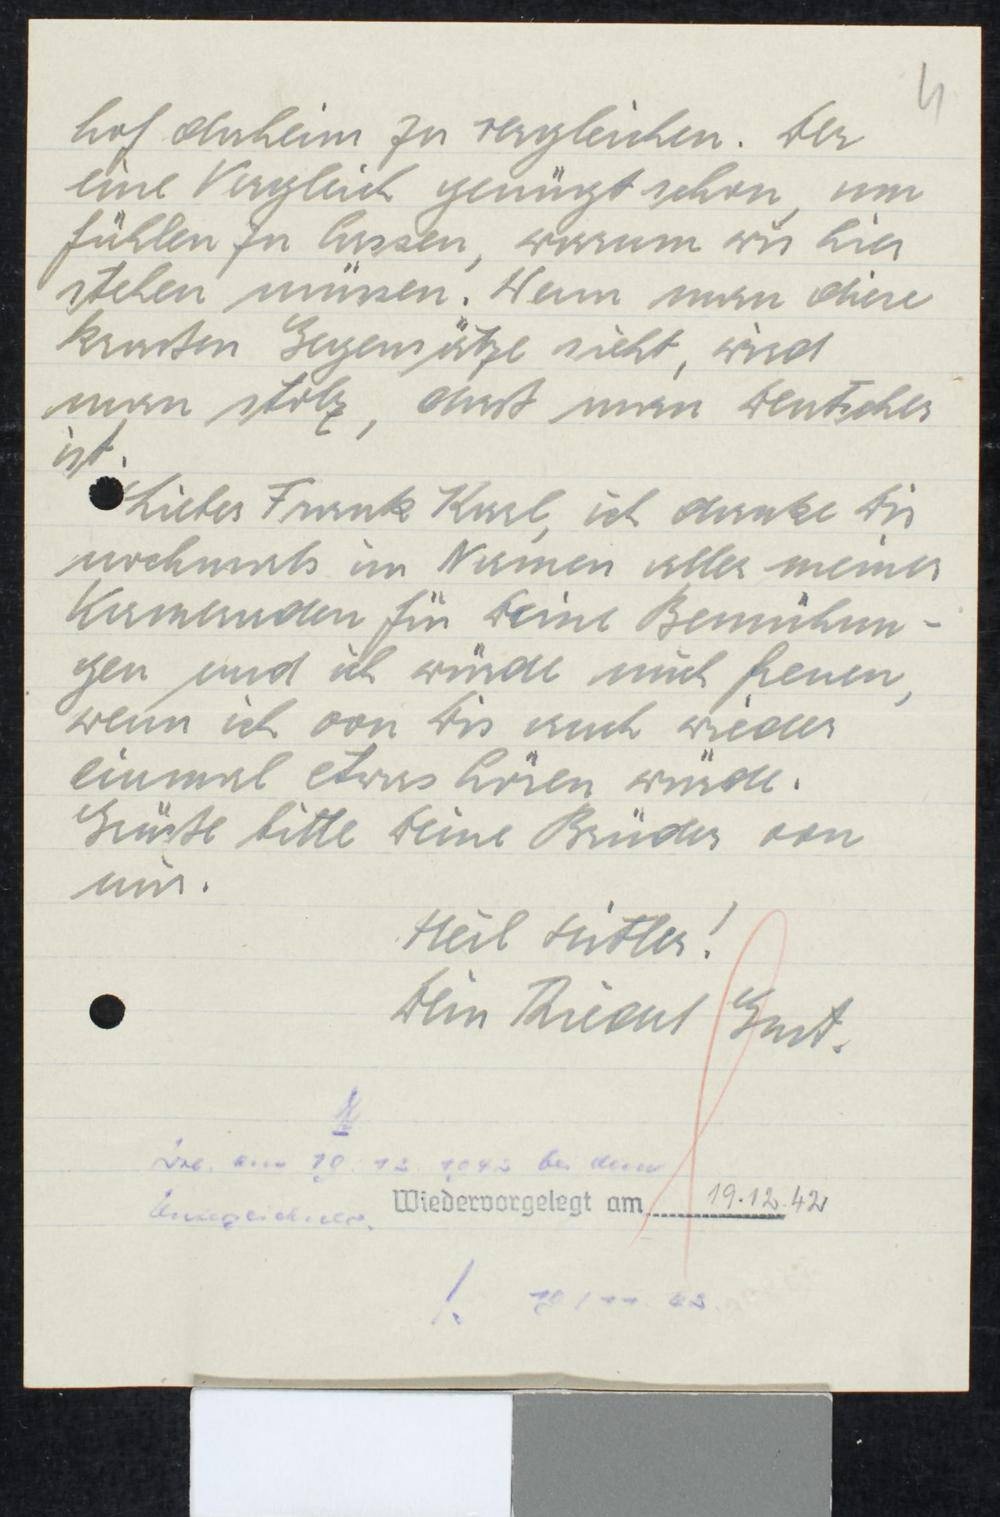 4
hof daheim zu vergleichen. Der
eine Vergleich genügt schon, um
fühlen zu lassen, warum wir hier
stehen müssen. Wenn man diese
krassen Gegensätze sieht, wird
man stolz, daß man Deutscher
ist.
Lieber Frank Karl, ich danke Dir
nochmals im Namen aller meiner
Kameraden für Deine Bemühun-
gen und ich würde mich freuen,
wenn ich von Dir auch wieder
einmal etwas hören würde.
Grüße bitte Deine Brüder von
mir.
Heil Hitler!
Dein Riedel Gust.
am 19. 12. 1942 bei dem
Unterzeichneten.
Wiedervorgelegt am 19.12.42